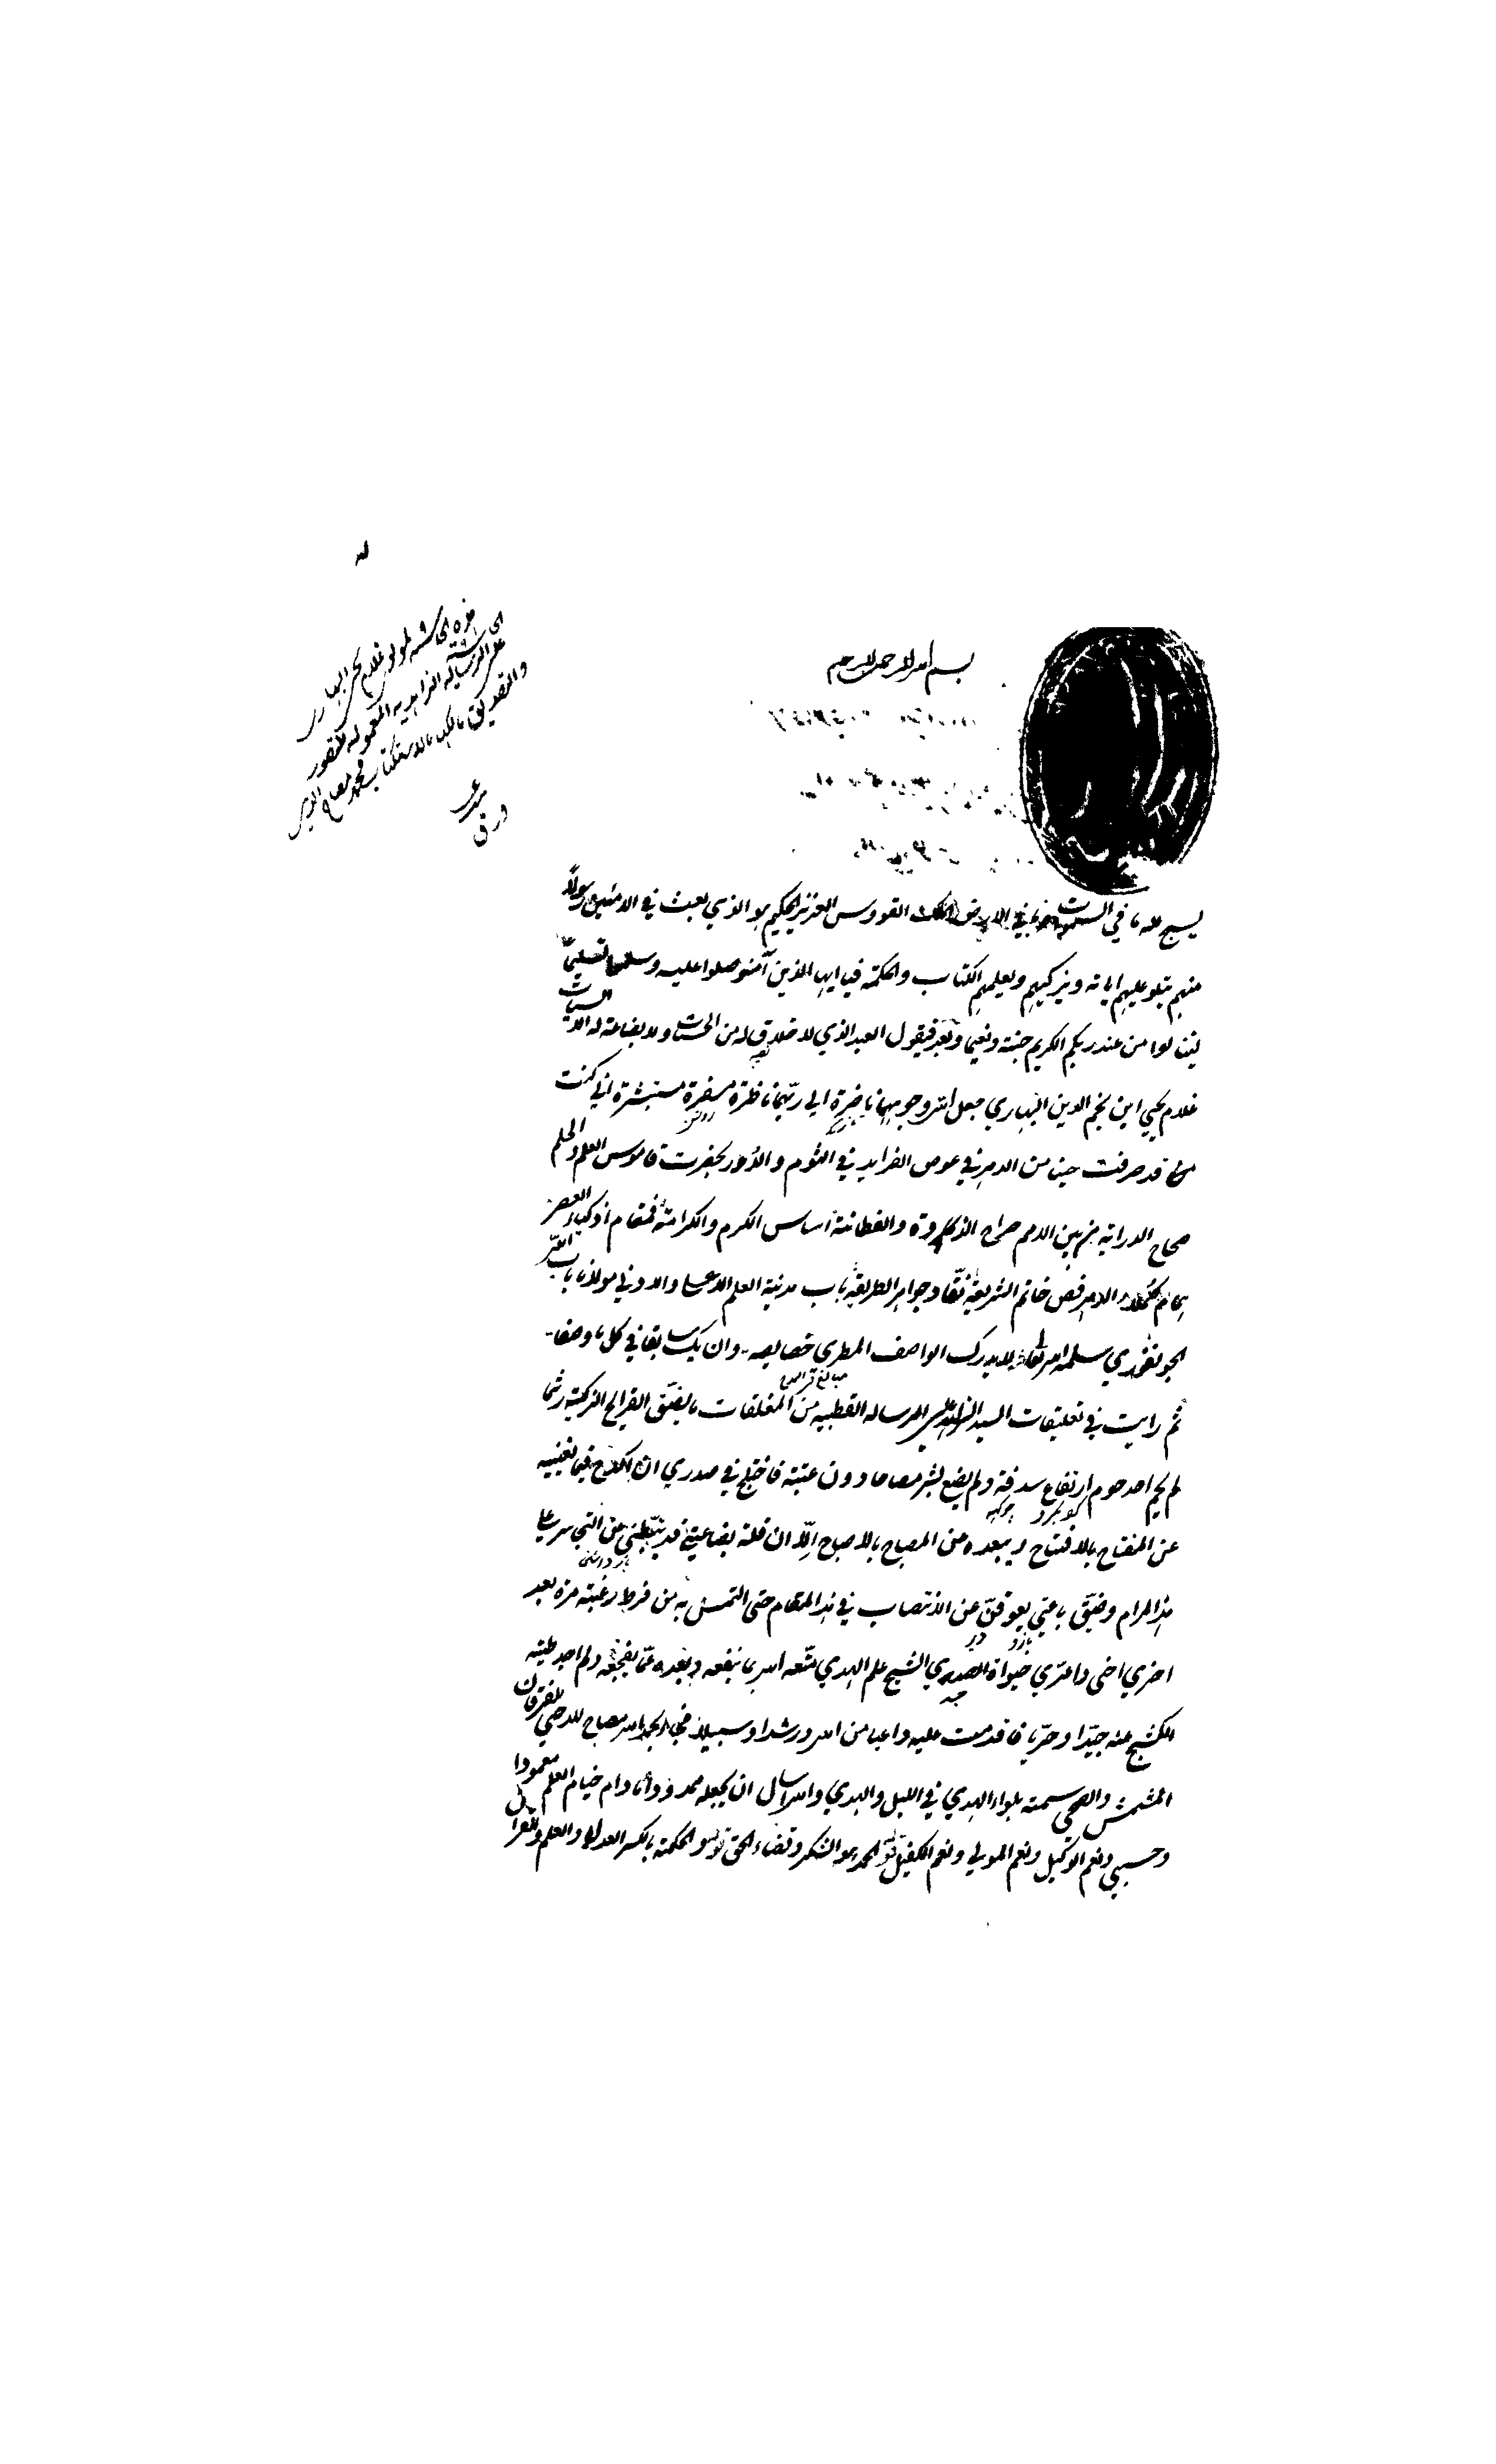 هذه الحاشية لمولوي غلام يحيى البهاري
على الرسالة الزاهدية المعمولة للتصور
والتصديق
بسم الله الرحمن الرحيم
يسبح لله ما في السموات وما في الارض الملك القدوس العزيز الحكيم هو الذي بعث في الاميين رسولاً
منهم يتلو عليهم اياته ويزكيهم ويعلمهم الكتاب والحكمة فيا ايها الذين آمنوا صلوا عليه وسلموا تسليماً
لينالوا من عند ربكم الكريم جنة ونعيما وبعد فيقول العبد الذي لا خلاق له من الحسنات ولا بضاعة له الا السيات
غلام يحيى ابن نجم الدين البهاري جعل الله وجوههما ناضرة الى ربهما ناظرة مسفرة مستبشرة اني كنت
قد صرفت حينا من الدهر في غوص الفرايد في التوم والدرر بحضرت قاموس العلم والحلم
صحاح الدراية بين الامم صراح الذكاوة والفطانة اساس الكرم والكرامة قمقام اذكياء العصر
همام كملاء الدهر فص خاتم الشريعة نقاد جواهر الطريقة باب مدينة العلم الاعلى والادنى مولانا باب الله
الجونفوري سلمه الله تعالى لا يدرك الواصف المطري خصايصه وان يك سابقا في كل ما وصفا
ثم رايت في تعليقات السيد الزاهد على الرسالة القطبية من المغلقات ما يضيق القرايح الزكية رشا
لم يحم احد حوم ارتفاع سدفة ولم يضع بشر مصاحا دون عتبة فاختلج في صدري ان اكدح فيما يغنيه
عن المفتاح بالافتتاح ويبعده من المصباح بالاصباح الّا ان قلة بضاعتي قد يثبطني عن التجاسر على
هذا المرام وضيق باعي يعوقني عن الانتصاب في هذا المقام حتى التمس به من فرط رغبته مرة بعد
اخرى اخي واعزي الشيخ علم الهدى متعه الله بما ينفعه ويبعده عما يفجعه ولم اجد
عنه فاقدمت عليه داعيا من الله رشدا وسبيلا فجاء بحمد الله مصباح
المشمس والضحى سميته بلواء الهدى في الليل والدجى والله اسال ان يجعله ممدودا ما دام خيام العلم معمودا
وحسبي ونعم الوكيل ونعم المولى ونعم الكفيل قوله الحمد هو الشكر وقضاء الحق قوله الحكمة بالكسر العدل والعلم والقرآن